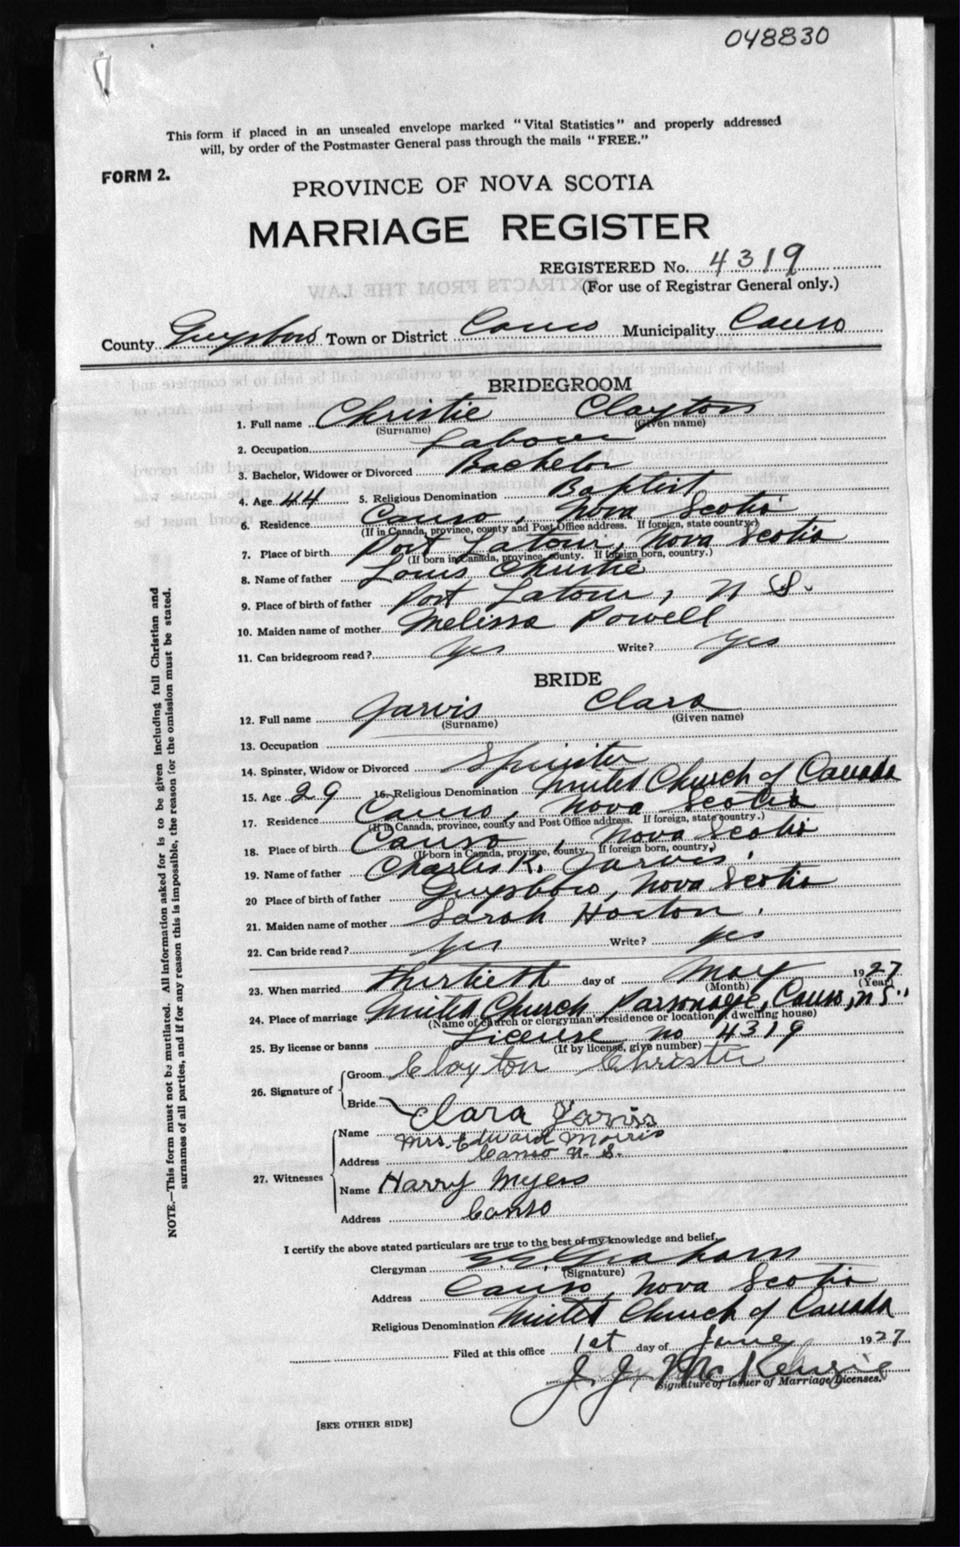 048830
This form if placed in an unsealed envelope marked "Vital Statistics" and properly addressed
will, by order of the Postmaster General pass through the mails "FREE."
FORM 2.
PROVINCE OF NOVA SCOTIA
MARRIAGE REGISTER
REGISTERED No. 4319
(For use of Registrar General only.)
County Guysboro Town or District Canso Municipality Canso
BRIDEGROOM
1. Full name Christie Clayton
(Surname) (Given name)
2. Occupation Labour
3. Bachelor, Widower or Divorced Bachelor
4. Age 44 5. Religious Denomination Baptist
6. Residence Canso, Nova Scotia
(If in Canada, province, county and Post Office address. If foreign, state country.)
7. Place of birth Port Latour, Nova Scotia
(If born in Canada, province, county. If foreign born, country.)
8. Name of father Louis Christie
9. Place of birth of father Port Latour, N S.
10. Maiden name of mother Melissa Powell
11. Can bridegroom read? Yes Write? Yes
BRIDE
12. Full name Jarvis Clara
(Surname) (Given name)
13. Occupation
14. Spinster, Widow or Divorced Spinster
15. Age 29 16. Religious Denomination United Church of Canada
17. Residence Canso, Nova Scotia
(If in Canada, province, county and Post Office address. If foreign, state country.)
18. Place of birth Canso, Nova Scotia
(If born in Canada, province, county. If foreign born, country.)
19. Name of father Charles K. Jarvis.
20 Place of birth of father Guysboro, Nova Scotia
21. Maiden name of mother Sarah Horton.
22. Can bride read? Yes Write? Yes
23. When married thirtieth day of May 1927
(Month) (Year)
24. Place of marriage United Church Parsonage, Canso, N S.
(Name of church or clergyman's residence or location of dwelling house)
25. By license or banns License no 4319
(If by license, give number)
26. Signature of
Groom Clayton Christie
Bride Clara Jarvis
27. Witnesses
Name Mrs. Edward Morris
Address Canso N. S.
Name Harry Myers
Address Canso
I certify the above stated particulars are true to the best of my knowledge and belief,
Clergyman Graham
(Signature)
Address Canso, Nova Scotia
Religious Denomination United Church of Canada
Filed at this office 1st day of June 1927
J. J. McKenzie
Signature of Issuer of Marriage Licenses.
[SEE OTHER SIDE]
NOTE.—This form must not be mutilated. All information asked for is to be given including full Christian and
surnames of all parties, and if for any reason this is impossible, the reason for the omission must be stated.